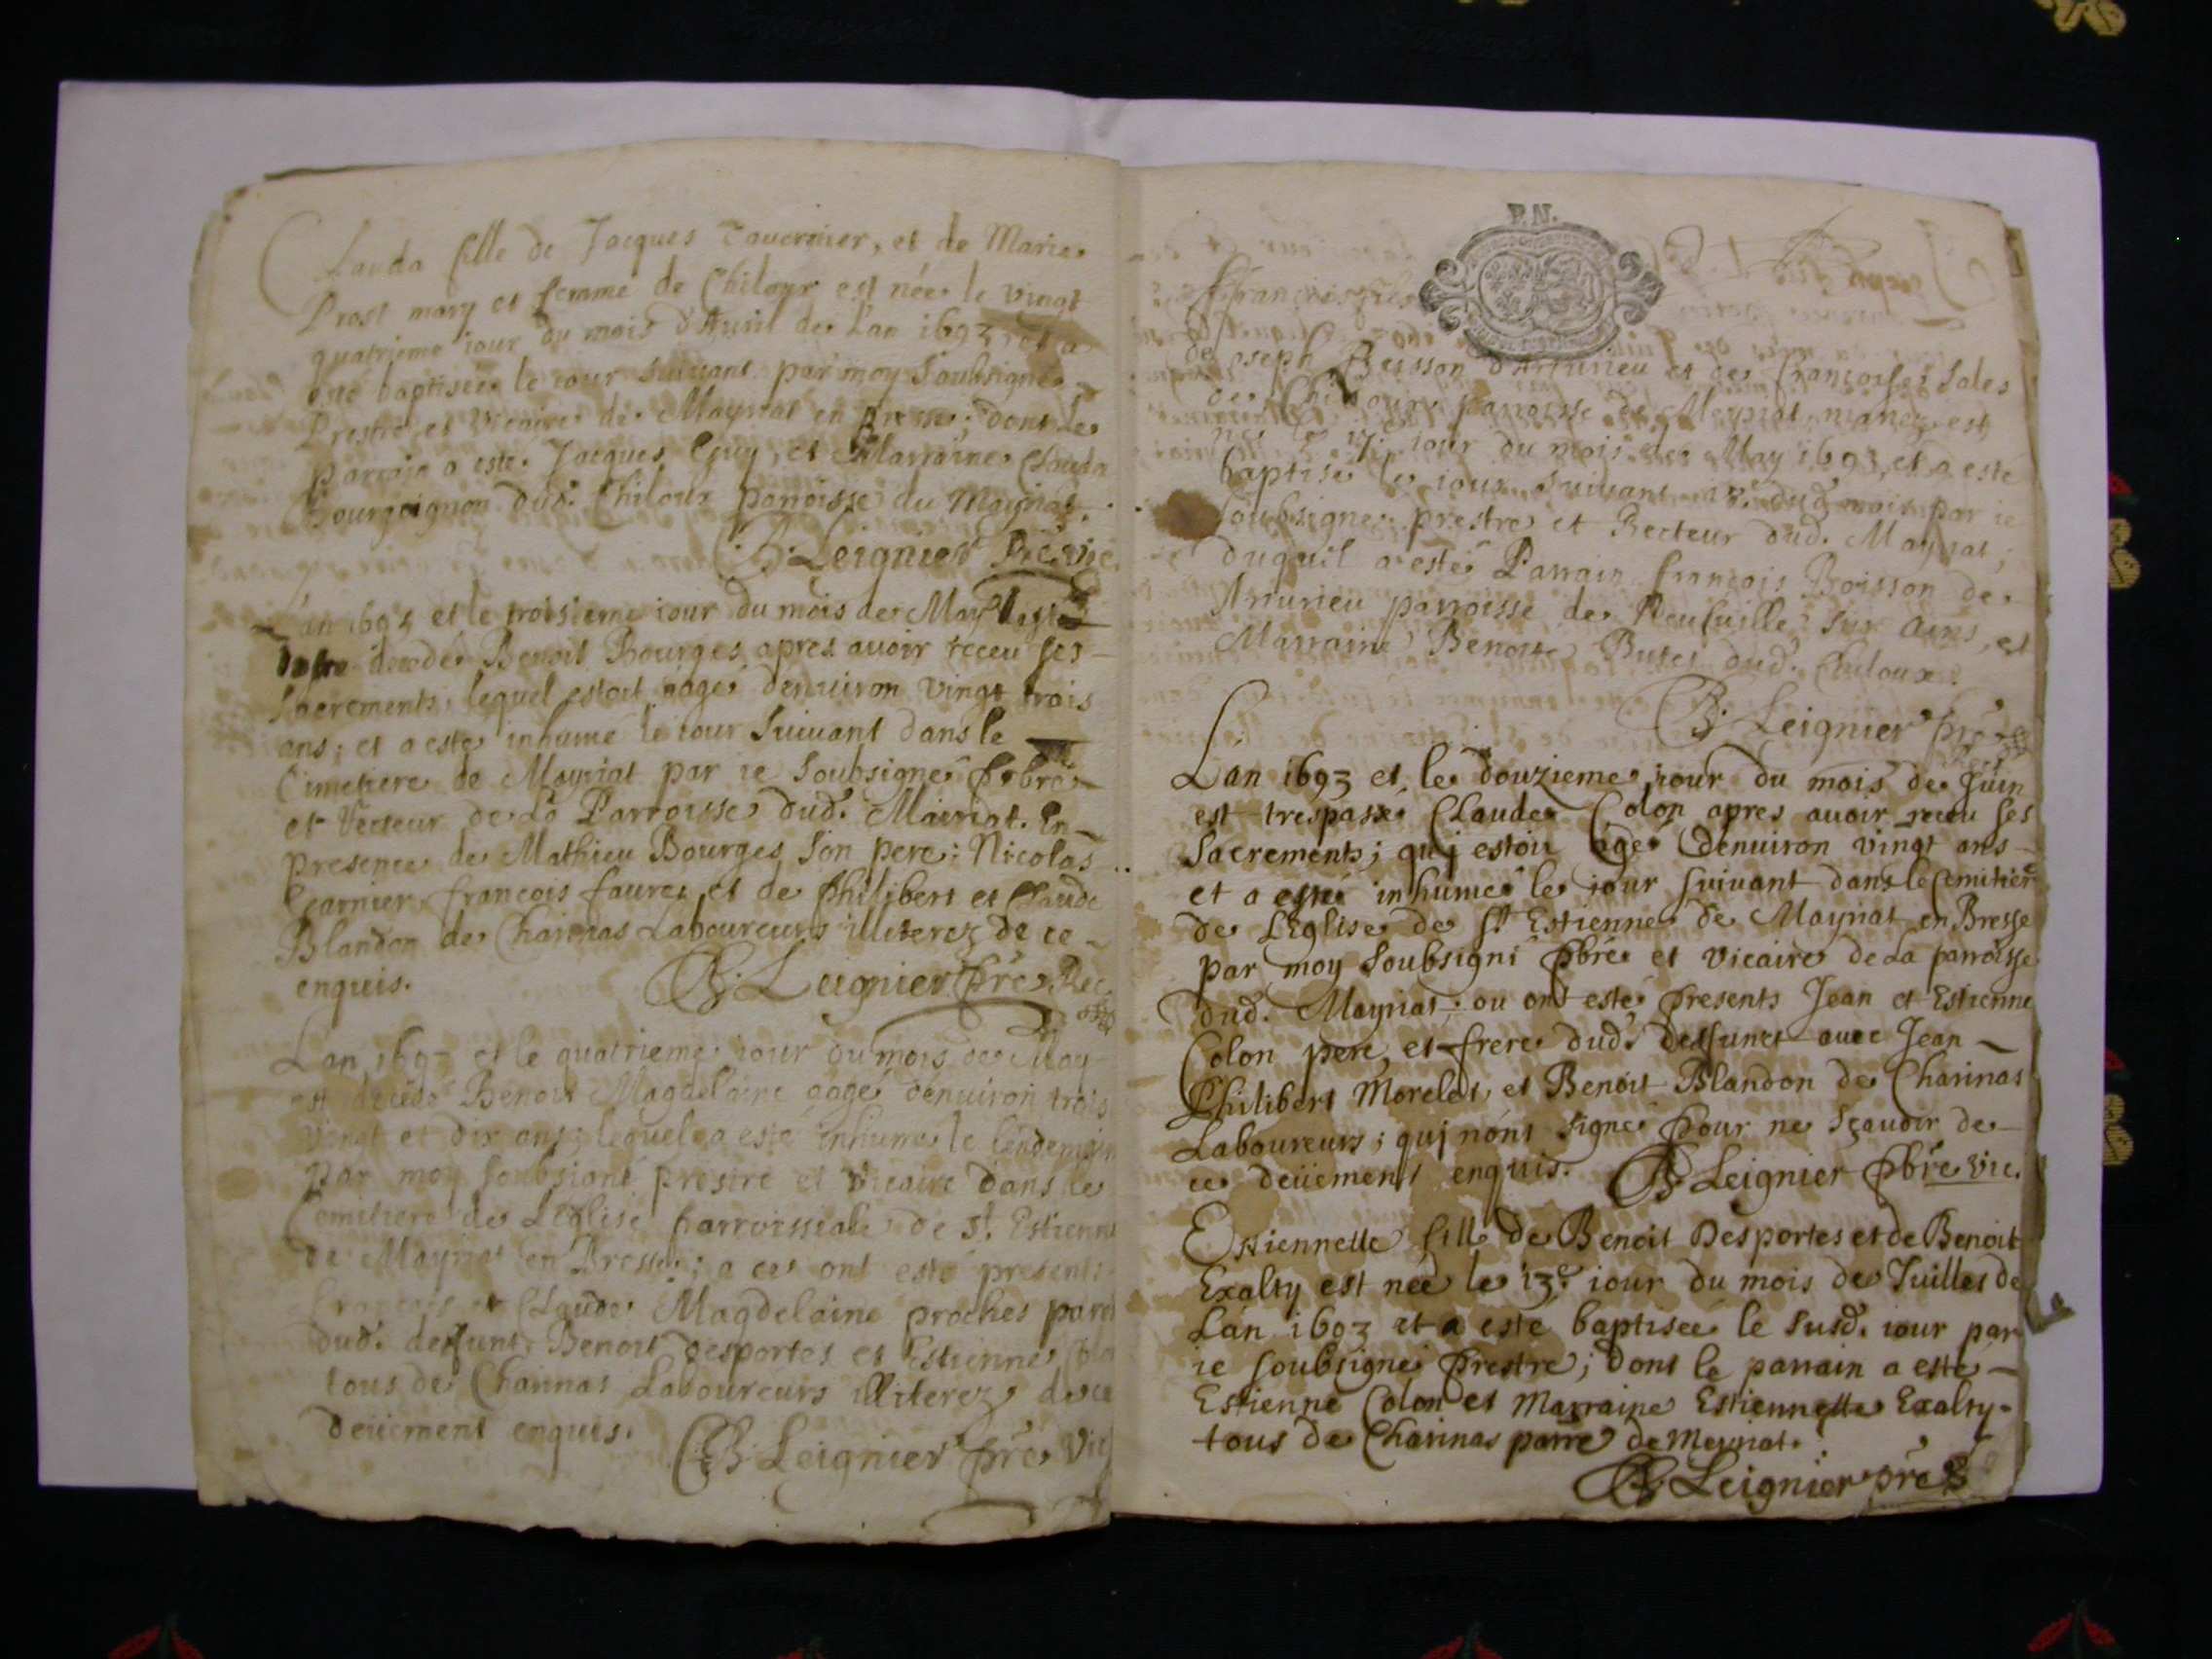 Clauda fille de Jacques Tavernier, et de Marie
Prost mary et femme de Chiloux est née le vingt
quatrieme iour du mois d'Auril de L'an 1693, et a
esté baptisée le iour suiuant par moy soubsigné
Prestre et Vicaire de Mayriat en Bresse; dont le
parrain a esté Jacques Guy, et Marraine Clauda
Bourguignon dud. Chiloux parroisse du Mayriat.
B. Leignier Pre Vic.
Lan 1693 et le troisieme iour du mois de May
decedé Benoit Bourges apres auoir receu ses
sacrements, lequel estoit aagé denuiron vingt trois
ans; et a esté inhumé le iour suiuant dans le
Cimetiere de Mayriat par ie soubsigné Pbre
et Recteur de La Parroisse dud. Mairiat. En
presence de Mathieu Bourges son pere: Nicolas
Garnier françois faures et de Philibert et Claude
Blandon de Charinas Laboureurs illiterez de ce
enquis.
B. Leignier pre Rec.
Lan 1693 et le quatrieme iour du mois de May
est decedé Benoit Magdelaine aagé denuiron trois
vingt et dix ans; lequel a esté inhumé le lendemain
par moy soubsigné prestre et vicaire dans le
Cemitiere de Léglise parroissiale de St. Estienne
de Mayriat en Bresse; a ce ont esté presents
françois et Claude Magdelaine proches paren
dud. deffunt, Benoit Desportes et Estienne Colo
tous de Charinas Laboureurs illiterez de ce
deüement enquis.
B. Leignier pre Vic
P.N.
François
de Joseph Boisson d'Arturieu et de françoise Sales
de Chiloux parroisse de Meyriat mariez est
né le 17. iour du mois de May 1693, et a esté
baptisé le iour suiuant dud. mois par ie
soubsigné prestre et Recteur dud. Mayriat;
duquel a esté Parrain françois Boisson de
Arturieu parroisse de Neufuille sur Ains, et
Marraine Benoite Buset dud. Chiloux.
B. Leignier pre
Lan 1693 et le douzieme iour du mois de Juin
est trespassé Claude Colon apres auoir receu ses
Sacrements; quj estoit agé denuiron vingt ans
et a esté inhumé le iour suiuant dans le Cemitiere
de Léglise de St Estienne de Mayriat en Bresse
par moy soubsigné Pbre et vicaire de La parroisse
dud. Mayriat, ou ont esté presents Jean et Estienne
Colon pere, et frere dud. deffunct avec Jean
Philibert Morelet, et Benoit Blandon de Charinas
Laboureurs; quj nont signé pour ne sçauoir de
ce deüement enquis. B. Leignier Pbre vic.
Estiennette fille de Benoit Desportes et de Benoit
Exalty est née le 13e. iour du mois de Juillet de
Lan 1693 et a esté baptisée le susd. iour par
ie soubsigné Prestre; dont le parrain a esté
Estienne Colon et Marraine Estiennette Exalty
tous de Charinas parre de Meyriat.
B. Leignier pre